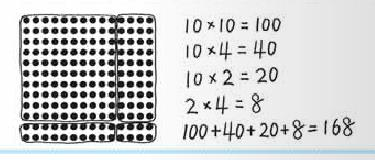 10 × 10 = 100
10 × 4 = 40
10 × 2 = 20
2 × 4 = 8
100 + 40 + 20 + 8 = 168